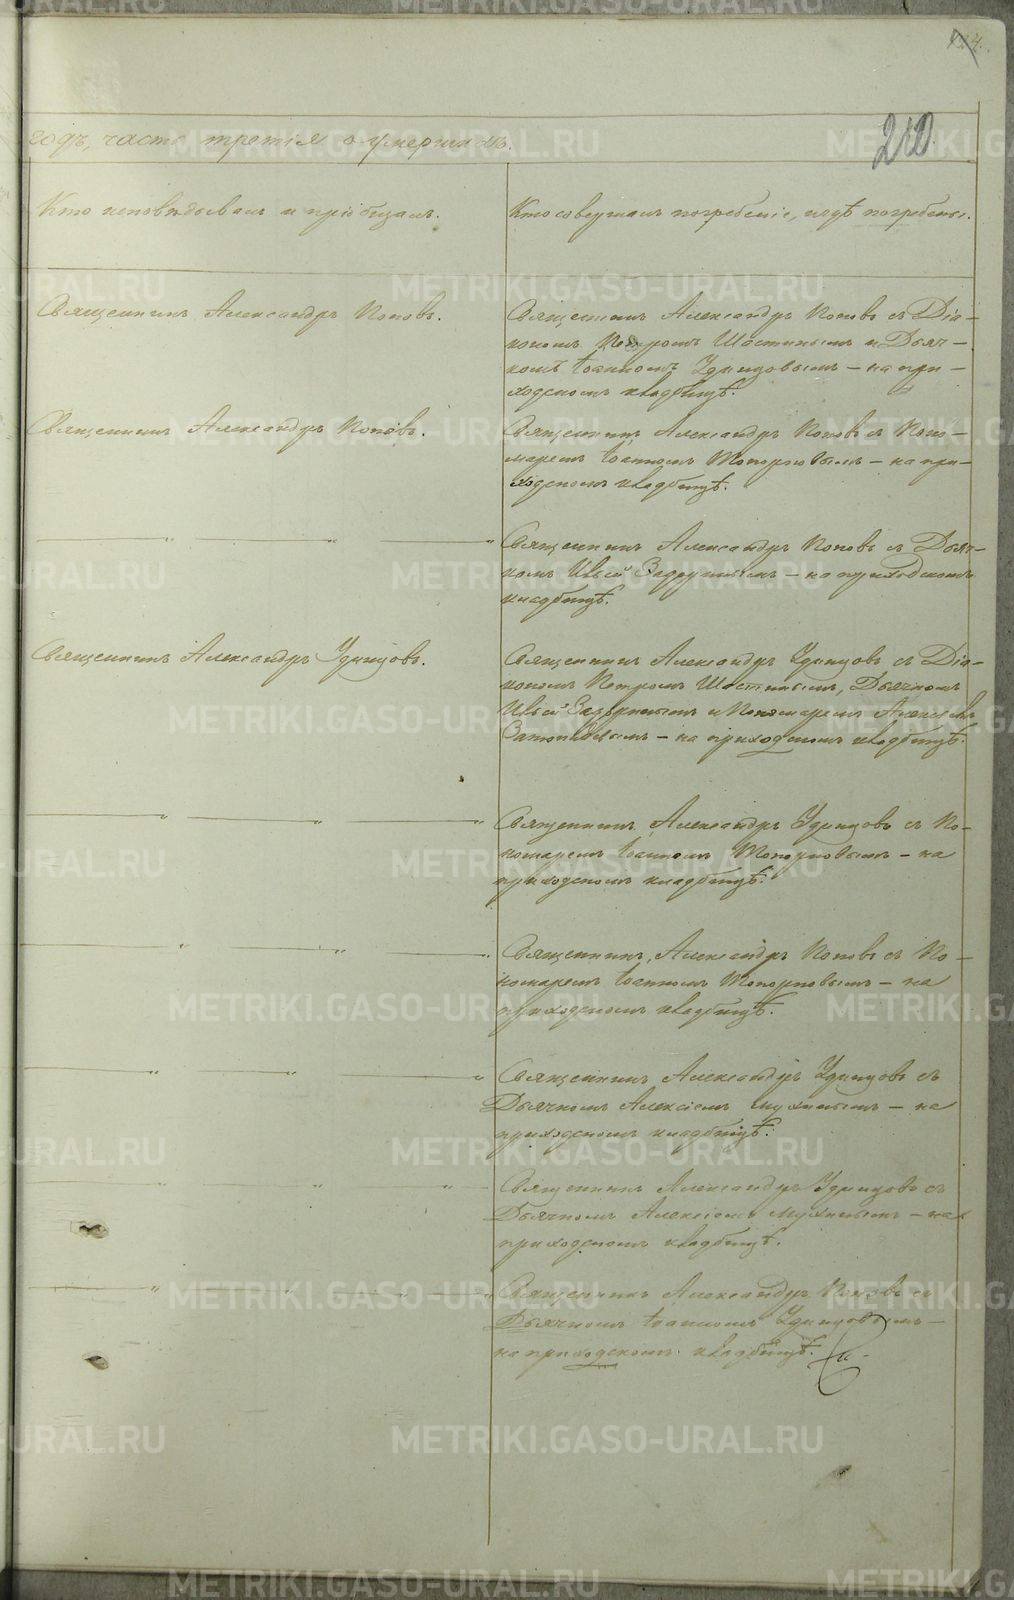 210
годъ, часть третія о умершихъ.
Кто исповѣдывалъ и пріобщалъ.
Кто совершалъ погребеніе, и гдѣ погребены.
Священникъ Александръ Поповъ.
Священникъ Александръ Поповъ съ Діа-
кономъ Петромъ Шастинымъ и Дьяч-
комъ Іоанномъ Удинцовымъ — на при-
ходскомъ кладбищѣ.
Священникъ Александръ Поповъ.
Священникъ Александръ Поповъ съ Поно-
маремъ Іоанномъ Топорковымъ — на при-
ходскомъ кладбищѣ.
— „ — „ — „
Священникъ Александръ Поповъ съ Дьяч-
комъ — на приходскомъ
кладбищѣ.
Священникъ Александръ Удинцовъ.
Священникъ Александръ Удинцовъ съ Діа-
кономъ Петромъ Шастинымъ, Дьячкомъ
и Пономаремъ Алексѣемъ
— на приходскомъ кладбищѣ.
— „ — „ —
Священникъ Александръ Удинцовъ съ По-
номаремъ Іоанномъ Топорковымъ — на
приходскомъ кладбищѣ.
— „ — „ — „
Священникъ Александръ Поповъ съ По-
номаремъ Іоанномъ Топорковымъ — на
приходскомъ кладбищѣ.
— „ — „ — „
Священникъ Александръ Удинцовъ съ
Дьячкомъ Алексіемъ Мухинымъ — на
приходскомъ кладбищѣ.
— „ — „ — „
Священникъ Александръ Удинцовъ съ
Дьячкомъ Алексіемъ Мухинымъ — на
приходскомъ кладбищѣ.
— „ — „ — „
Священникъ Александръ Поповъ съ
Дьячкомъ Іоанномъ Удинцовымъ —
на приходскомъ кладбищѣ.
METRIKI.GASO-URAL.RU